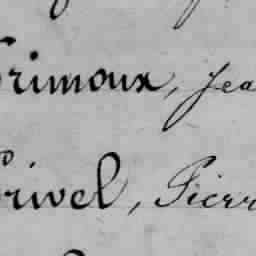 rimoux, Jea
rivel, Pierr